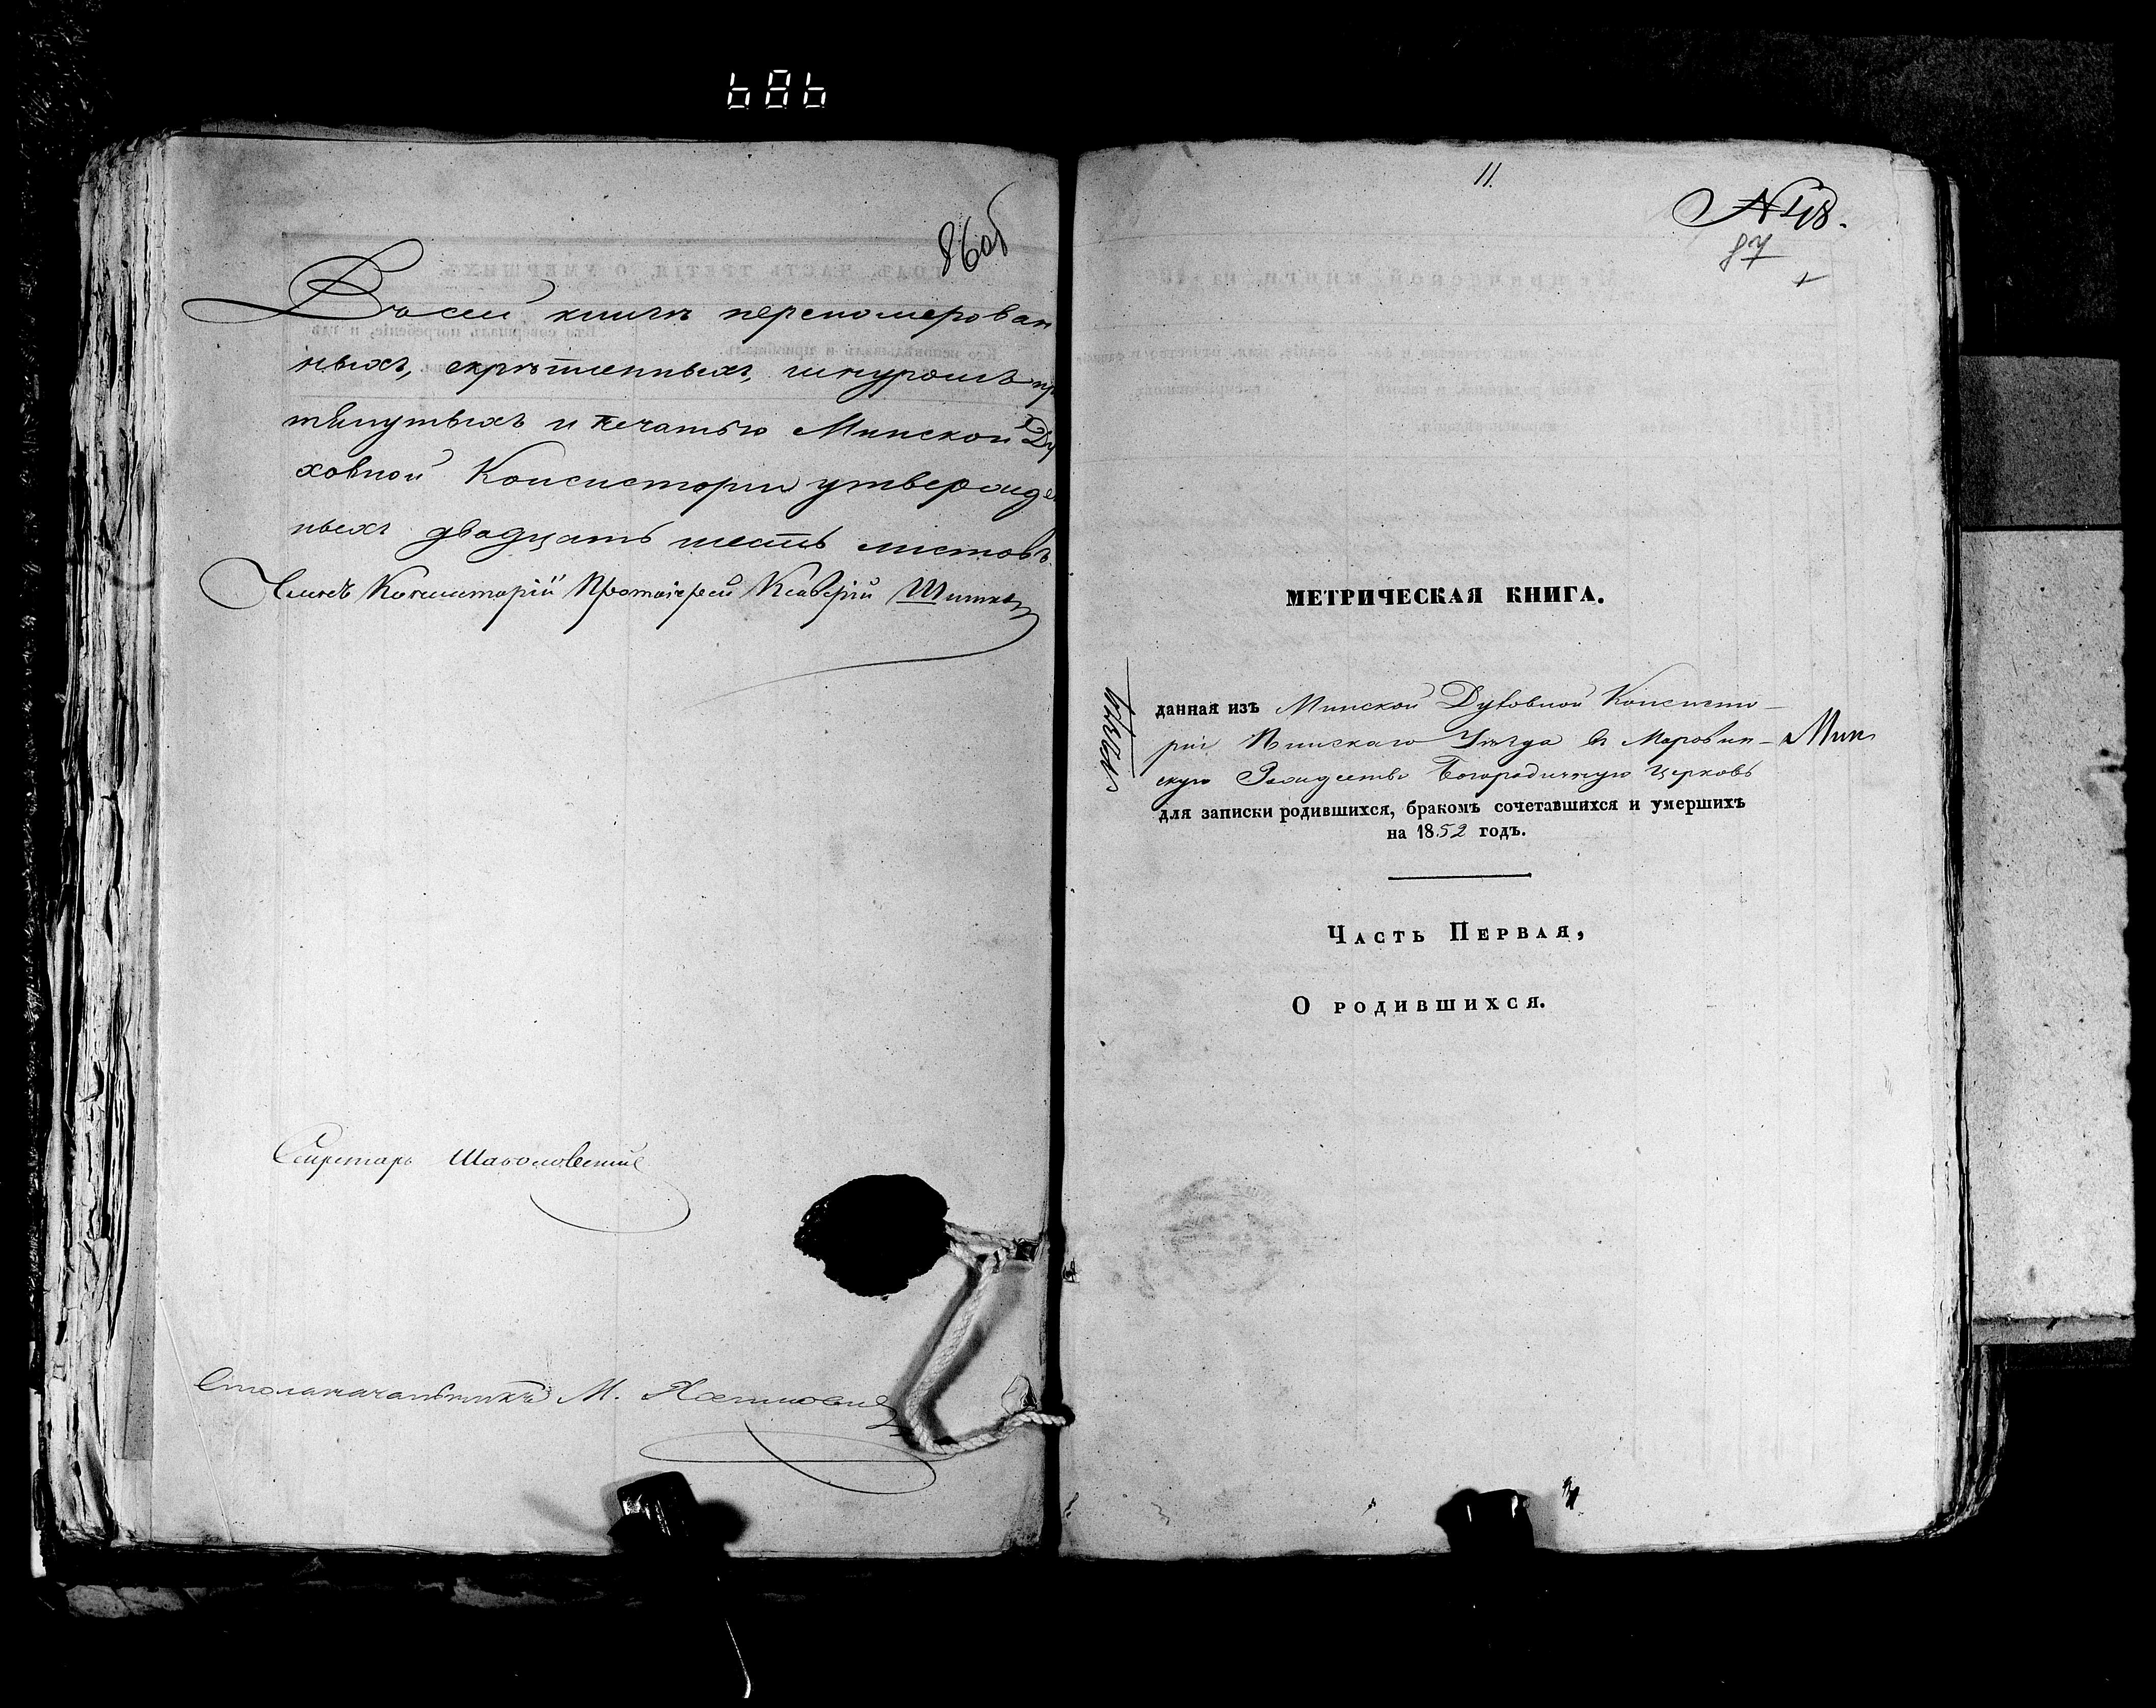 86 об
Въ сей книгѣ перепомерован
ныхъ, скрѣпленныхъ, шнуромъ пр
тянутыхъ и печатью Минской Ду
ховной Консисторіи утвержден
ныхъ двадцать шесть листовъ.
Членъ Консисторіи Протоіерей Ксаверій
Секретарь
Столоначальникъ М.
11.
№ 48.
87
МЕТРИЧЕСКАЯ КНИГА.
данная изъ Минской Духовной Консисто-
ріи Пинскаго Уѣзда въ Моровин-
скую Рождество Богородичную церковь
для записки родившихся, бракомъ сочетавшихся и умершихъ
на 1852 годъ.
Часть Первая,
О родившихся.